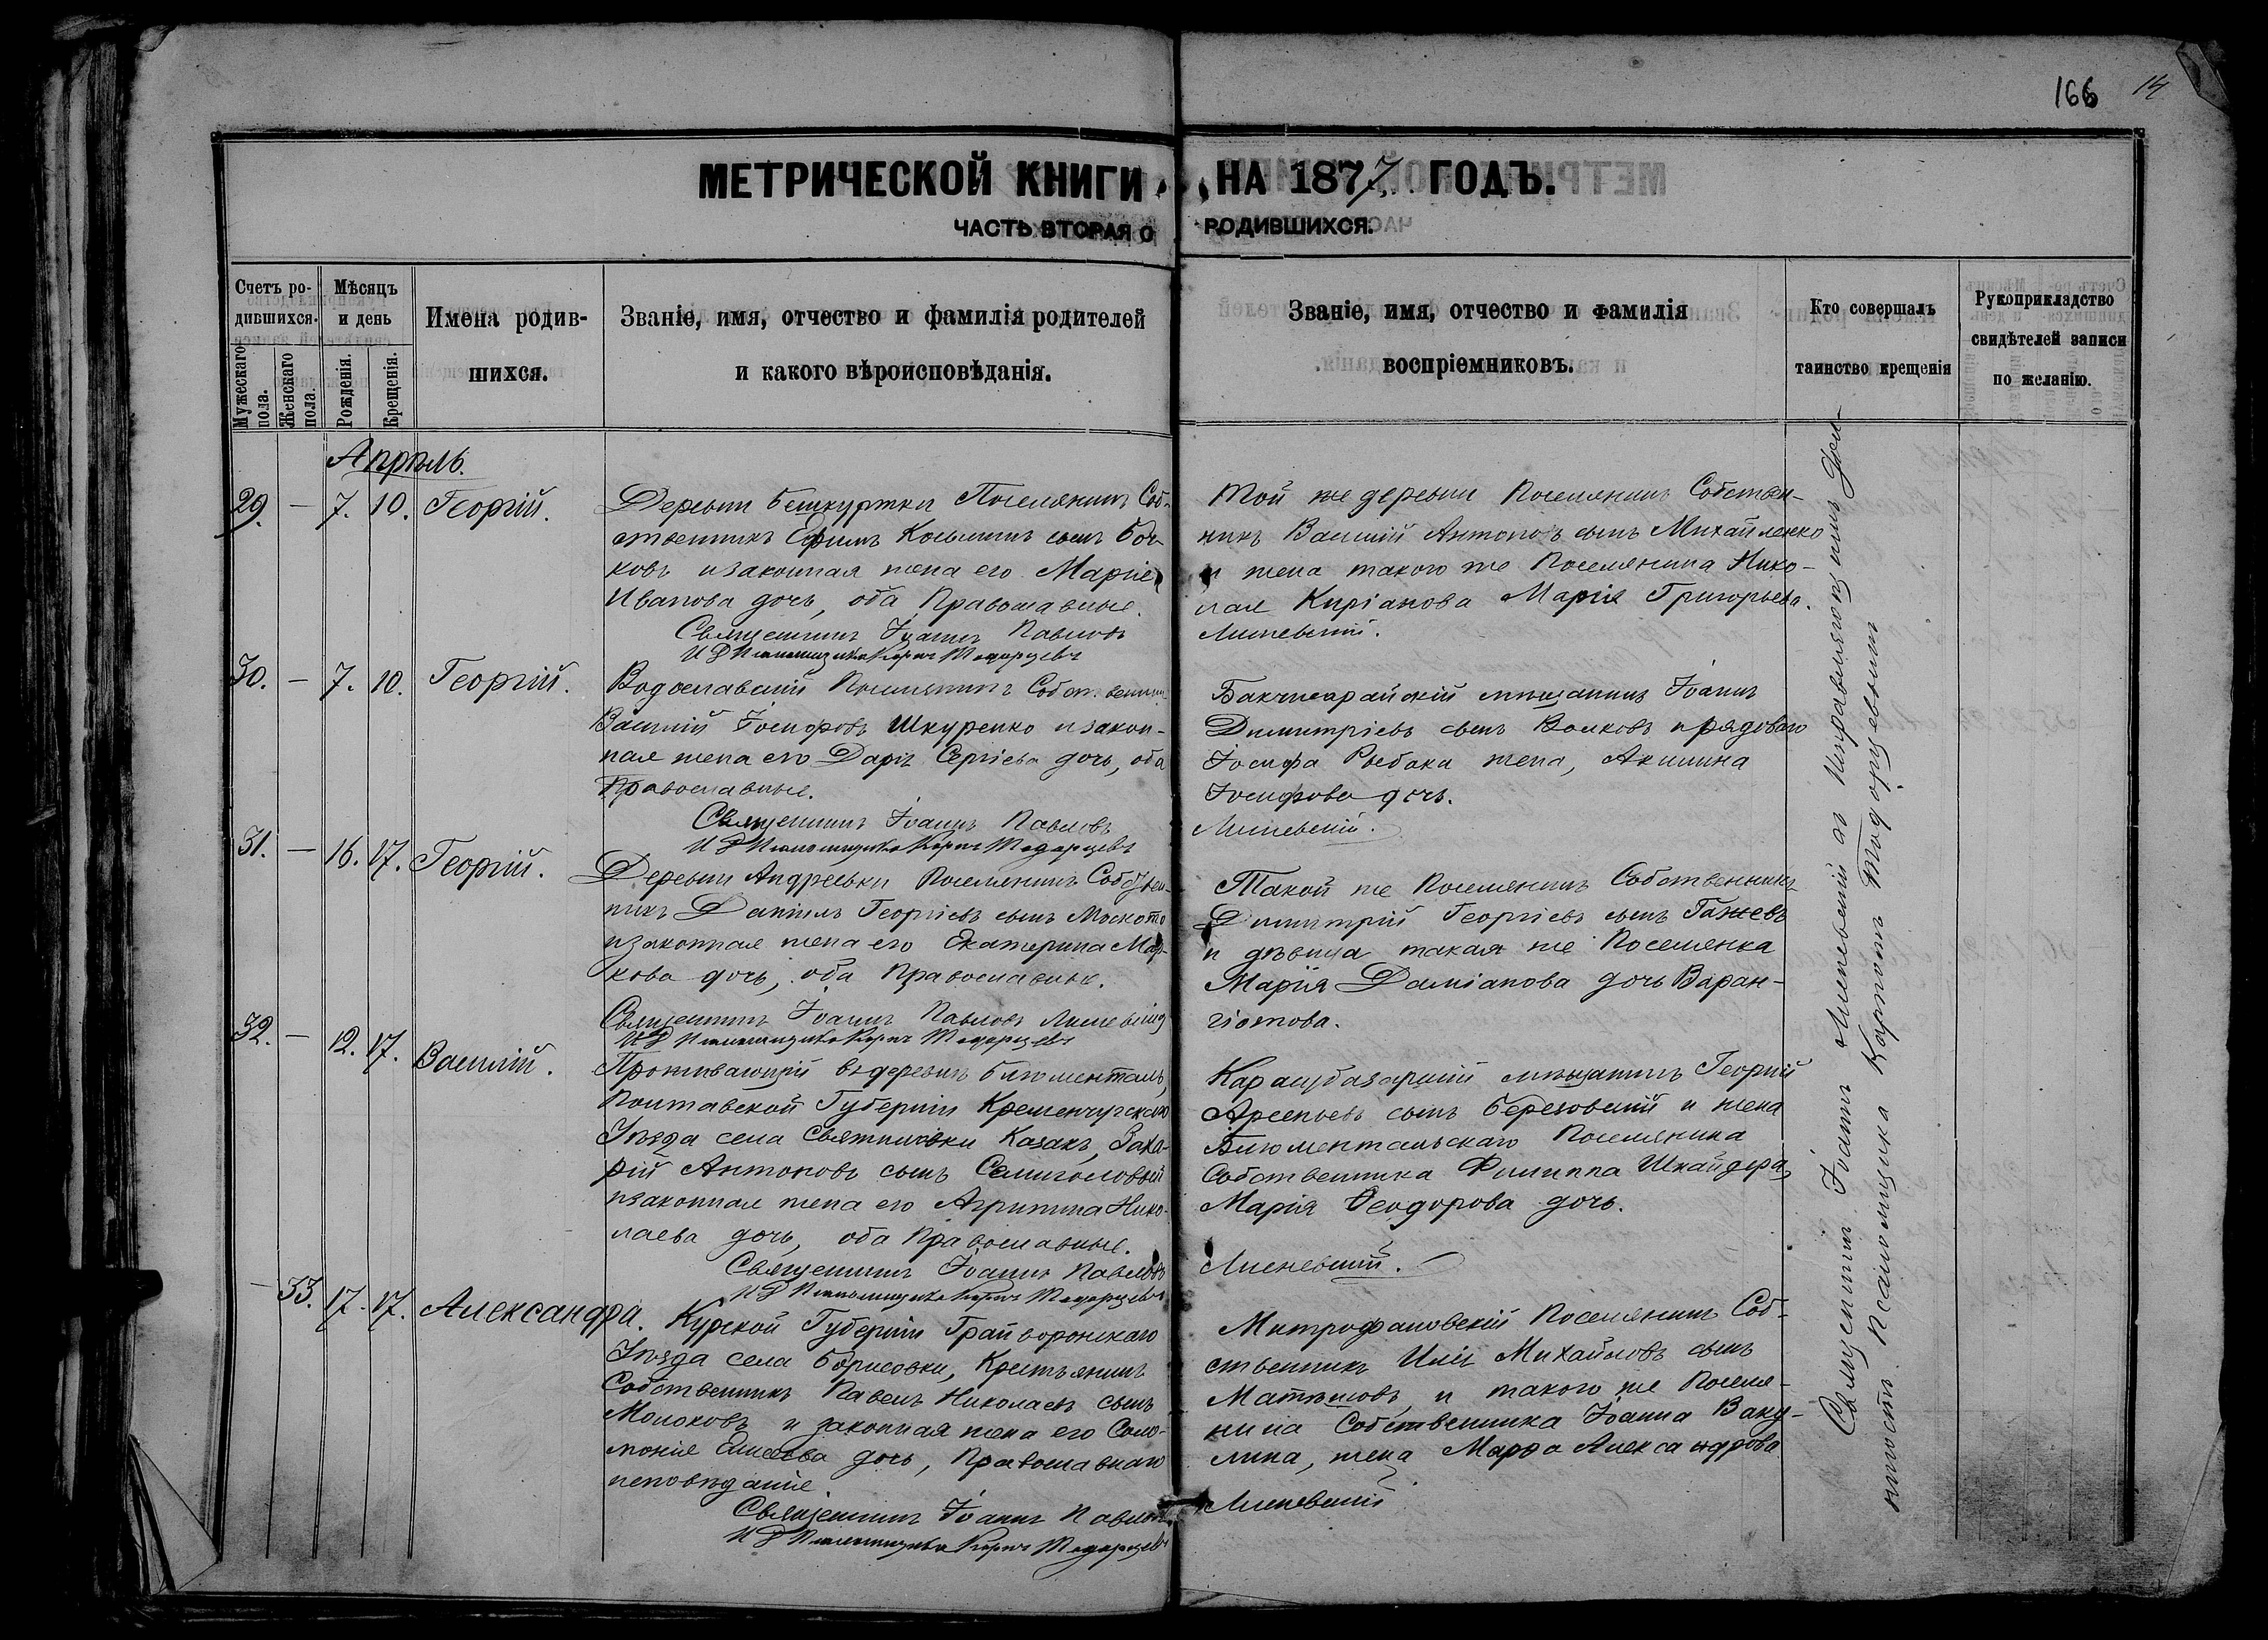 166 14
МЕТРИЧЕСКОЙ КНИГИ НА 1877 ГОДЪ.
ЧАСТЬ ВТОРАЯ О РОДИВШИХСЯ.
Счетъ ро-
дившихся.
Мужескаго
пола.
Женскаго
пола.
Мѣсяцъ
и день
Рожденія.
Крещенія.
Имена родив-
шихся.
Званіе, имя, отчество и фамилія родителей
и какого вѣроисповѣданія.
Званіе, имя, отчество и фамилія
воспріемниковъ.
Кто совершалъ
таинство крещенія
Рукоприкладство
свидѣтелей записи
по желанію.
Апрѣль.
29. — 7. 10. Георгій.
Деревни Поселянинъ Соб-
ственникъ Ефимъ Косьминъ сынъ Боч-
ковъ и законная жена его Марія
Иванова дочь, оба Православные.
Священникъ Іоаннъ Павловъ
И Д Псаломщика Тодорцевъ
Той же деревни Поселянинъ Собствен-
никъ Василій Антоновъ сынъ Михайленко
и жена такого же Поселянина Нико-
лая Киріакова Марія Григорьева.
Линевскій.
30. — 7. 10. Георгій.
Водославскій Поселянинъ Собственникъ
Василій Іосифовъ Шкуренко и закон-
ная жена его Дарія Сергіева дочь, оба
Православные.
Священникъ Іоаннъ Павловъ
И Д Псаломщика Тодорцевъ
Бакчисарайскій мѣщанинъ Іоаннъ
Димитріевъ сынъ Волковъ и рядового
Іосифа Рыбака жена, Акилина
Іосифова дочь.
Линевскій.
31. — 16. 17. Георгій.
Деревни Андреевки Поселянинъ Собствен-
никъ Даніилъ Георгіевъ сынъ
и законная жена его Екатерина Мар-
кова дочь, оба Православные.
Священникъ Іоаннъ Павловъ Линевскій
И Д Псаломщика Тодорцевъ
Такой же Поселянинъ Собственникъ
Димитрій Георгіевъ сынъ Гажевъ
и дѣвица такая же Поселянка
Марія Даміанова дочь Варан-
гіотова.
32. — 12. 17. Василій.
Проживающій въ деревнѣ Блюменталь,
Полтавской Губерніи Кременчугскаго
Уѣзда села Святиловки Казакъ, Заха-
рій Антоновъ сынъ Семиголовый
и законная жена его Агрипина Нико-
лаева дочь, оба Православные.
Священникъ Іоаннъ Павловъ
И Д Псаломщика Тодорцевъ
Карасубазарскій мѣщанинъ Георгій
Арсеньевъ сынъ Березовскій и жена
Блюментальскаго Поселянина
Собственника Филиппа Шнайдера,
Марія Ѳеодорова дочь.
Линевскій.
— 33. 17. 17. Александра.
Курской Губерніи Грайворонскаго
Уѣзда села Борисовки, Крестьянинъ
Собственникъ Павелъ Николаевъ сынъ
Молоковъ и законная жена его Соло-
монія дочь, Православнаго
исповѣданія.
Священникъ Іоаннъ Павловъ
И Д Псаломщика Тодорцевъ
Митрофановскій Поселянинъ Соб-
ственникъ Илія Михайловъ сынъ
и такого же Поселя-
нина Собственника Іоанна Ваку-
лина, жена Марѳа Александрова
Линевскій
Священникъ Іоаннъ Линевскій съ Исправляющимъ Дол-
жность Псаломщика Тодорцевымъ